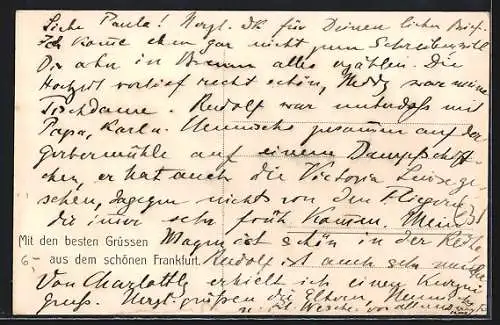 Liebe Paula! Herzl. Dk für Deinen lieben Brief.
Ich komme eben gar nicht zum Schreiben, will
Dir aber in alles erzählen. Die
Hochzeit verlief recht schön, Heddy war meine
Tischdame. Rudolf war unterdeß mit
Papa, Karl u. zusammen auf der
Gerbermühle auf einem Dampfschiff-
chen, er hat auch die Victoria Luise ge-
sehen, dagegen nichts von den Fliegern
die immer sehr früh kamen. Mein
Mit den besten Grüssen
Magen ist schön in der Reihe
aus dem schönen Frankfurt.
Rudolf ist auch sehr
Von Charlotte erhielt ich einen kurzen
Gruß. Herzl. grüßen die Eltern,
u.